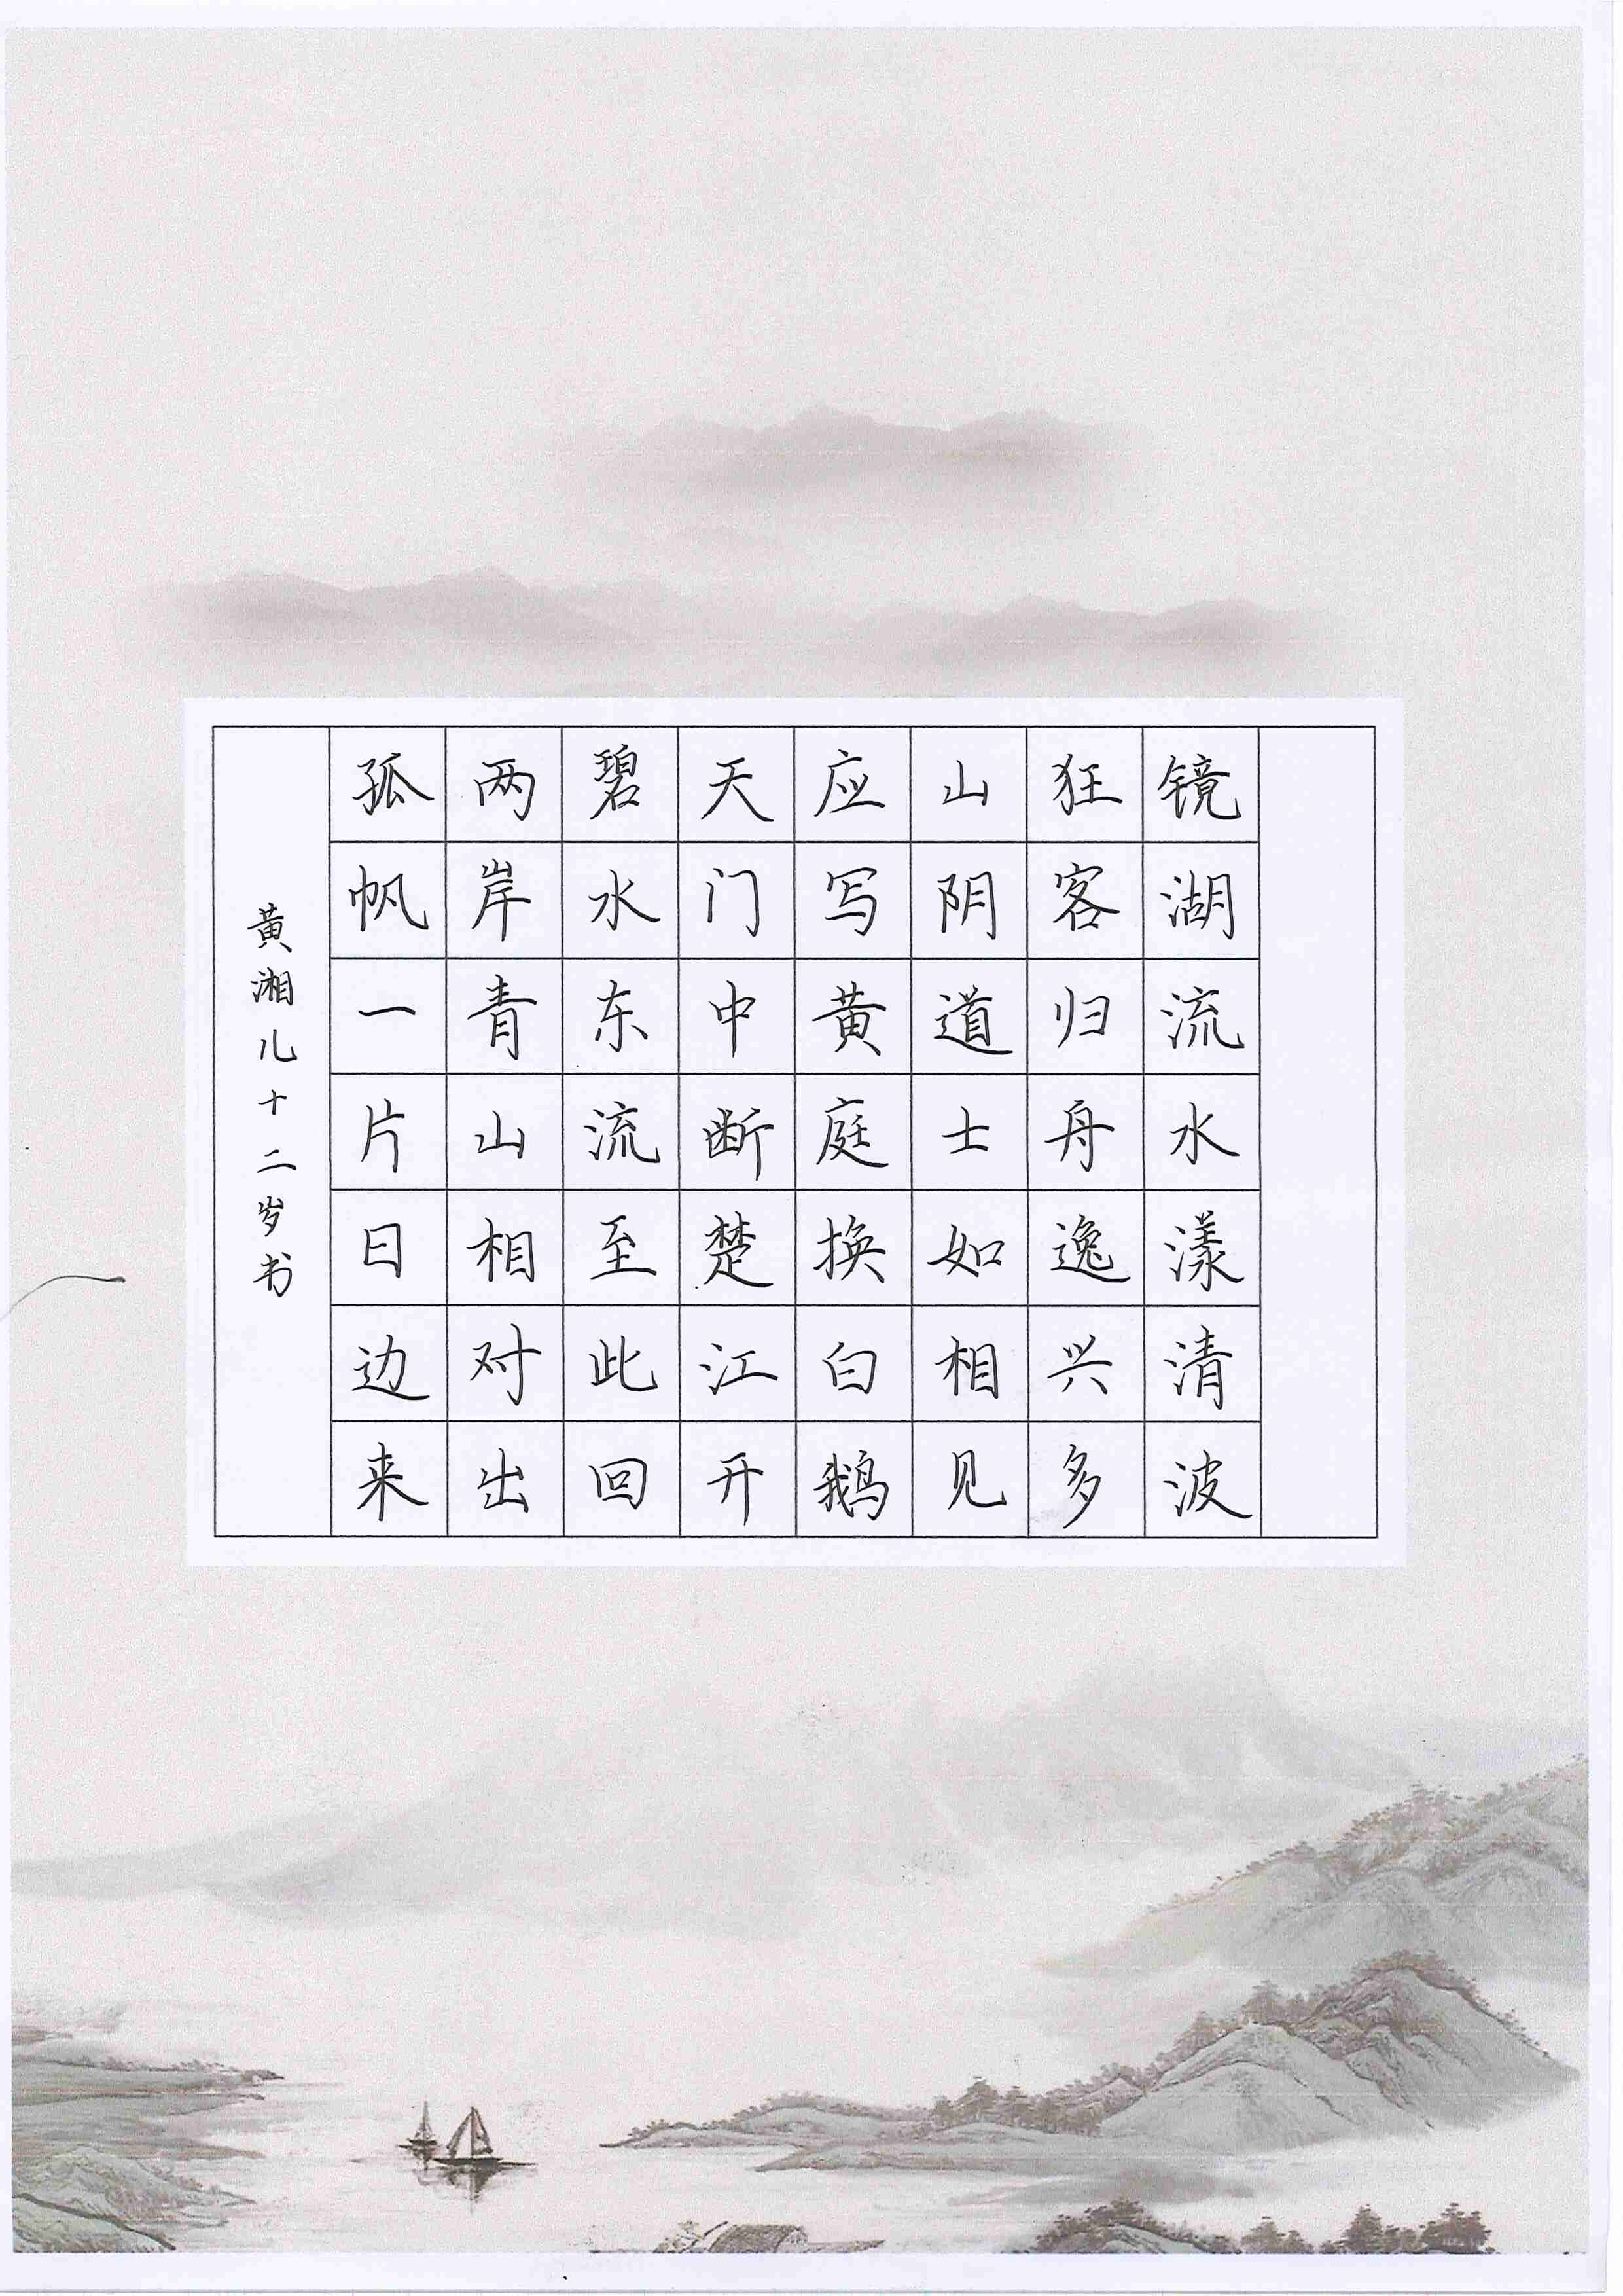 镜湖流水漾清波
狂客归舟逸兴多
山阴道士如相见
应写黄庭换白鹅
天门中断楚江开
碧水东流至此回
两岸青山相对出
孤帆一片日边来
黄湘儿十二岁书